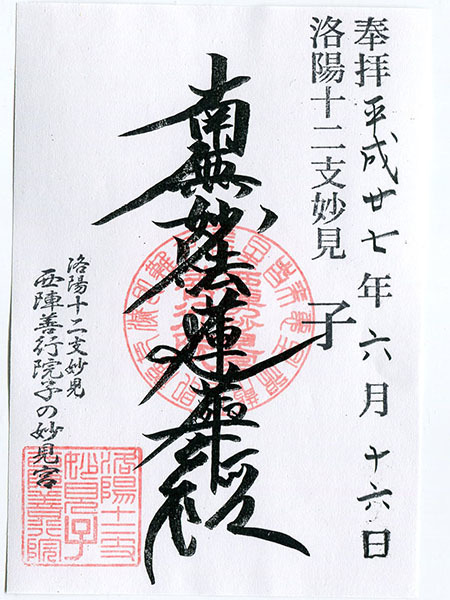 奉拝 平成廿七年六月十六日
洛陽十二支妙見 子
南無妙法蓮華経
洛陽十二支妙見
西陣善行院子の妙見宮
洛陽十二支
妙見子
善行院